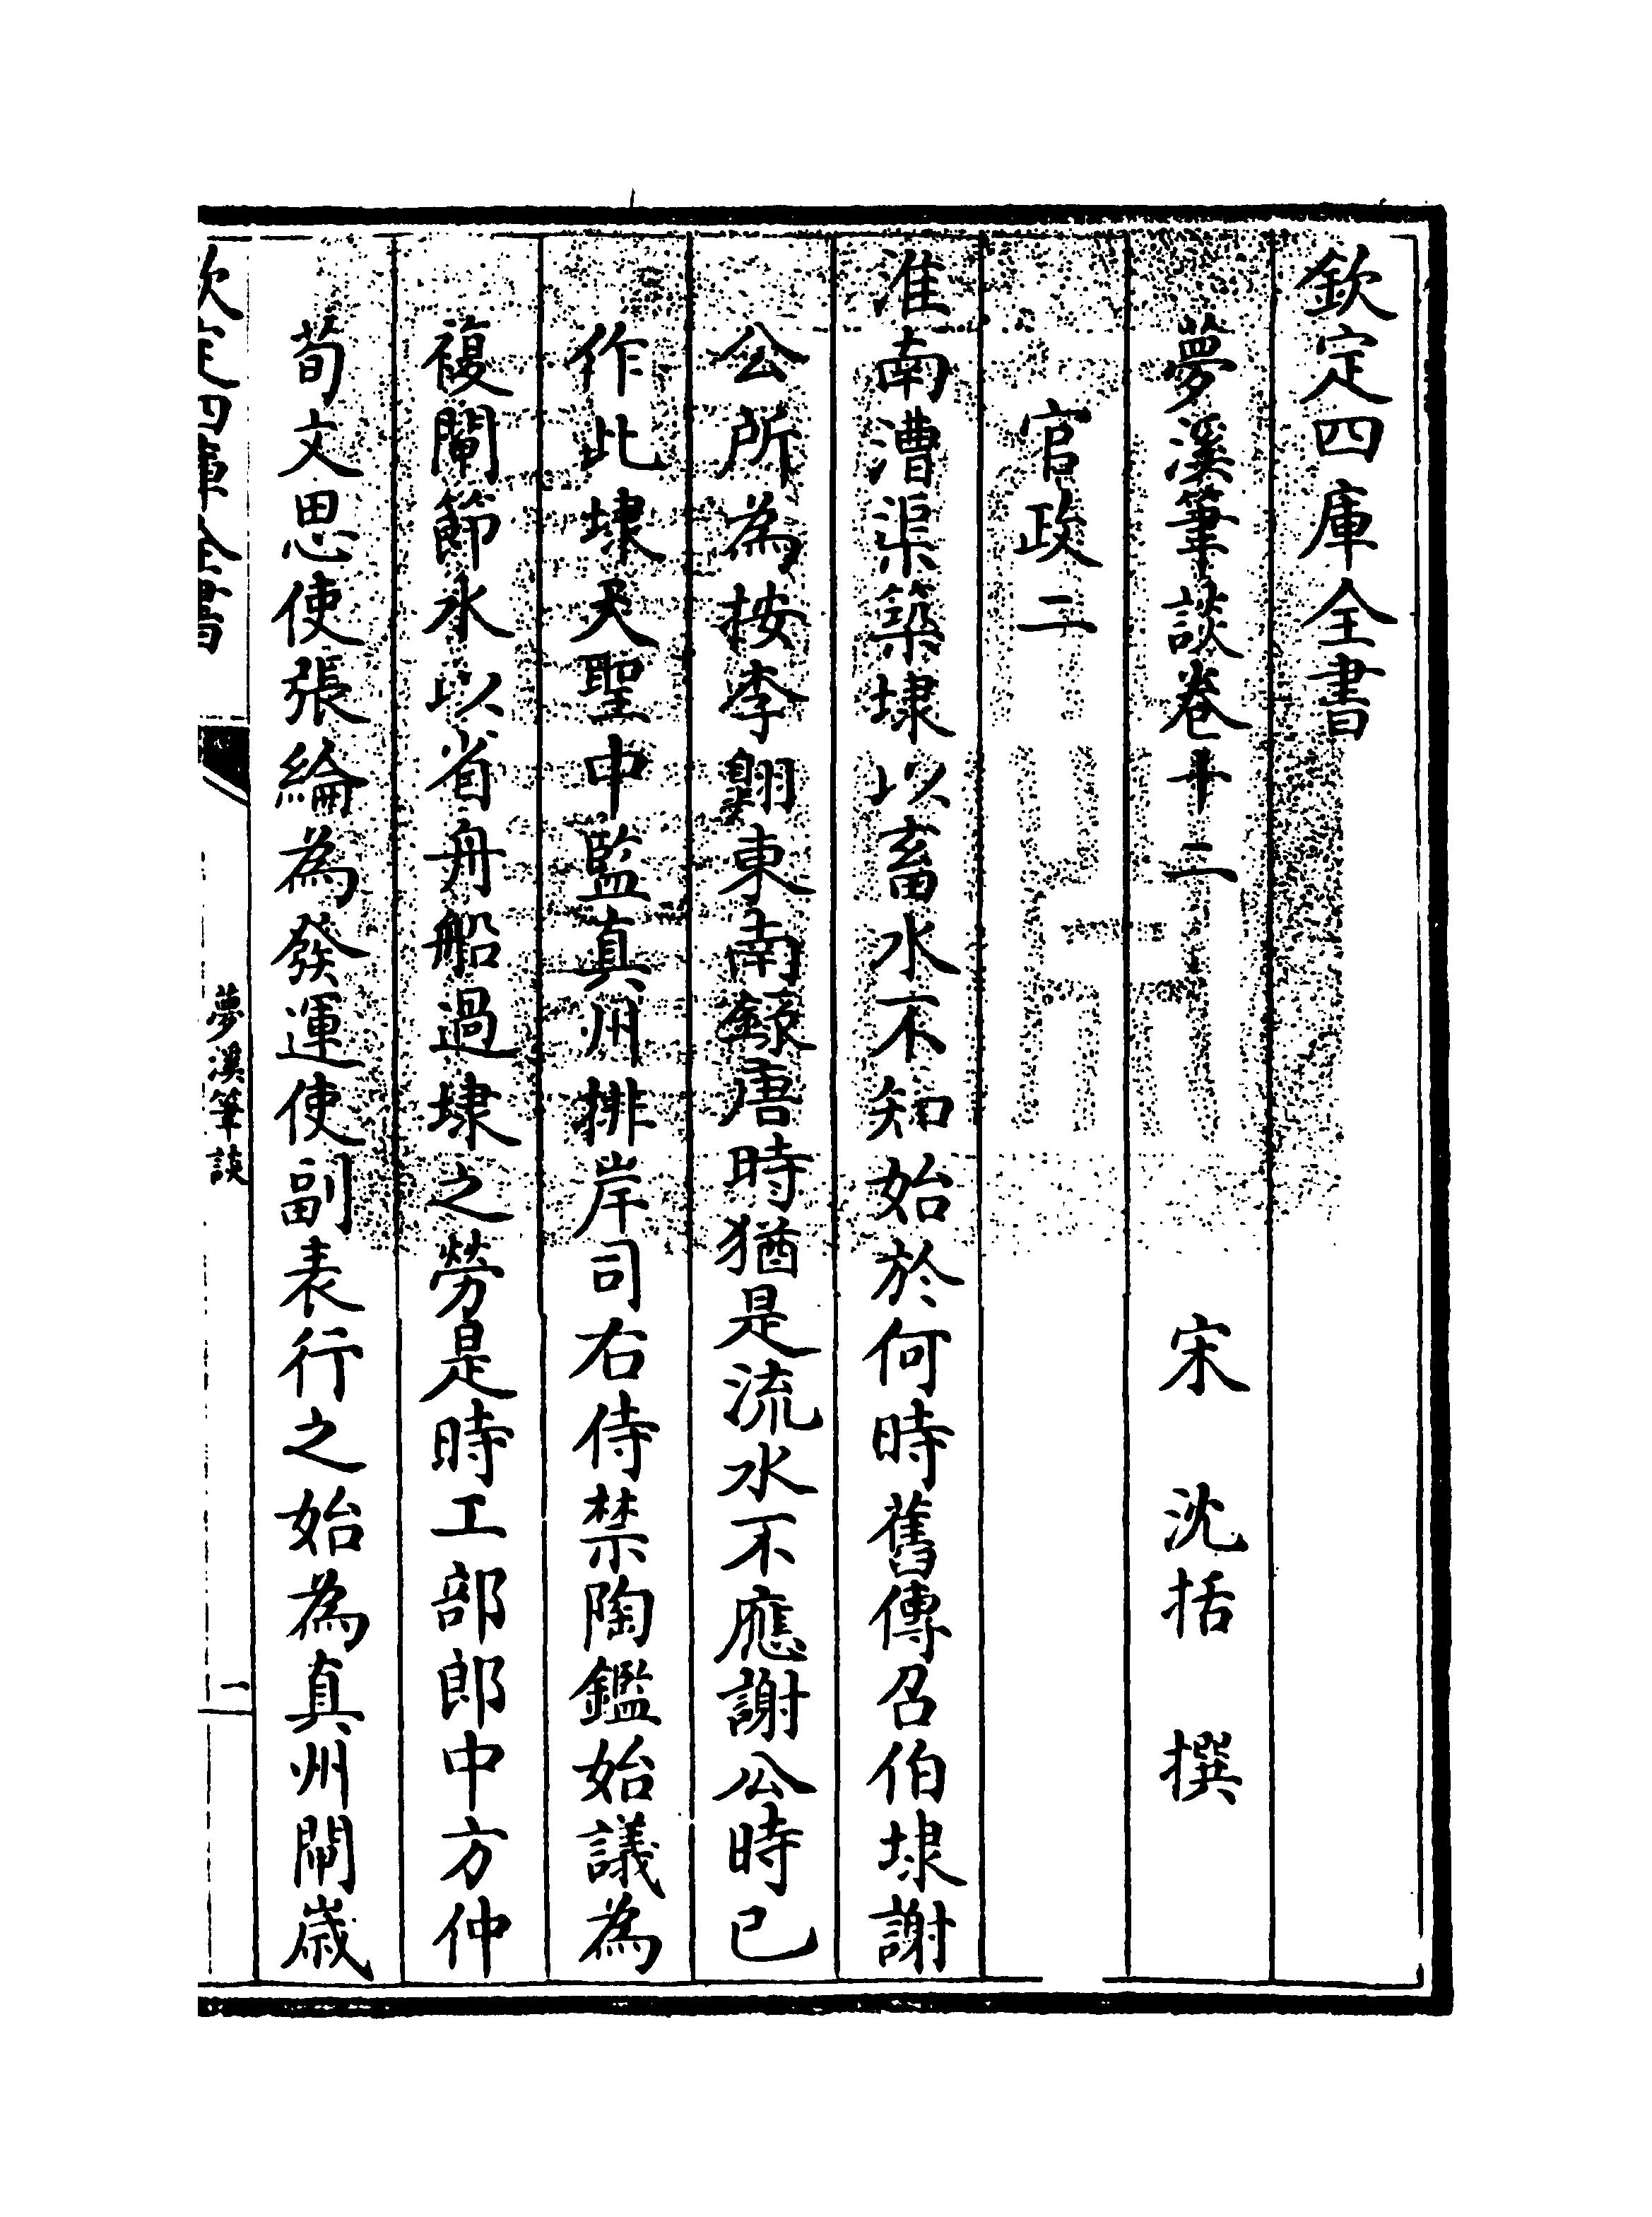 欽定四庫全書
夢溪筆談卷十二
宋 沈括 撰
官政二
淮南漕渠築埭以畜水不知始於何時舊傳召伯埭謝
公所為按李翺東南錄唐時猶是流水不應謝公時已
作此埭天聖中監真州排岸司右侍禁陶鑑始議為
複閘節水以省舟船過埭之勞是時工部郎中方仲
荀文思使張綸為發運使副表行之始為真州閘歲
欽定四庫全書
夢溪筆談
一